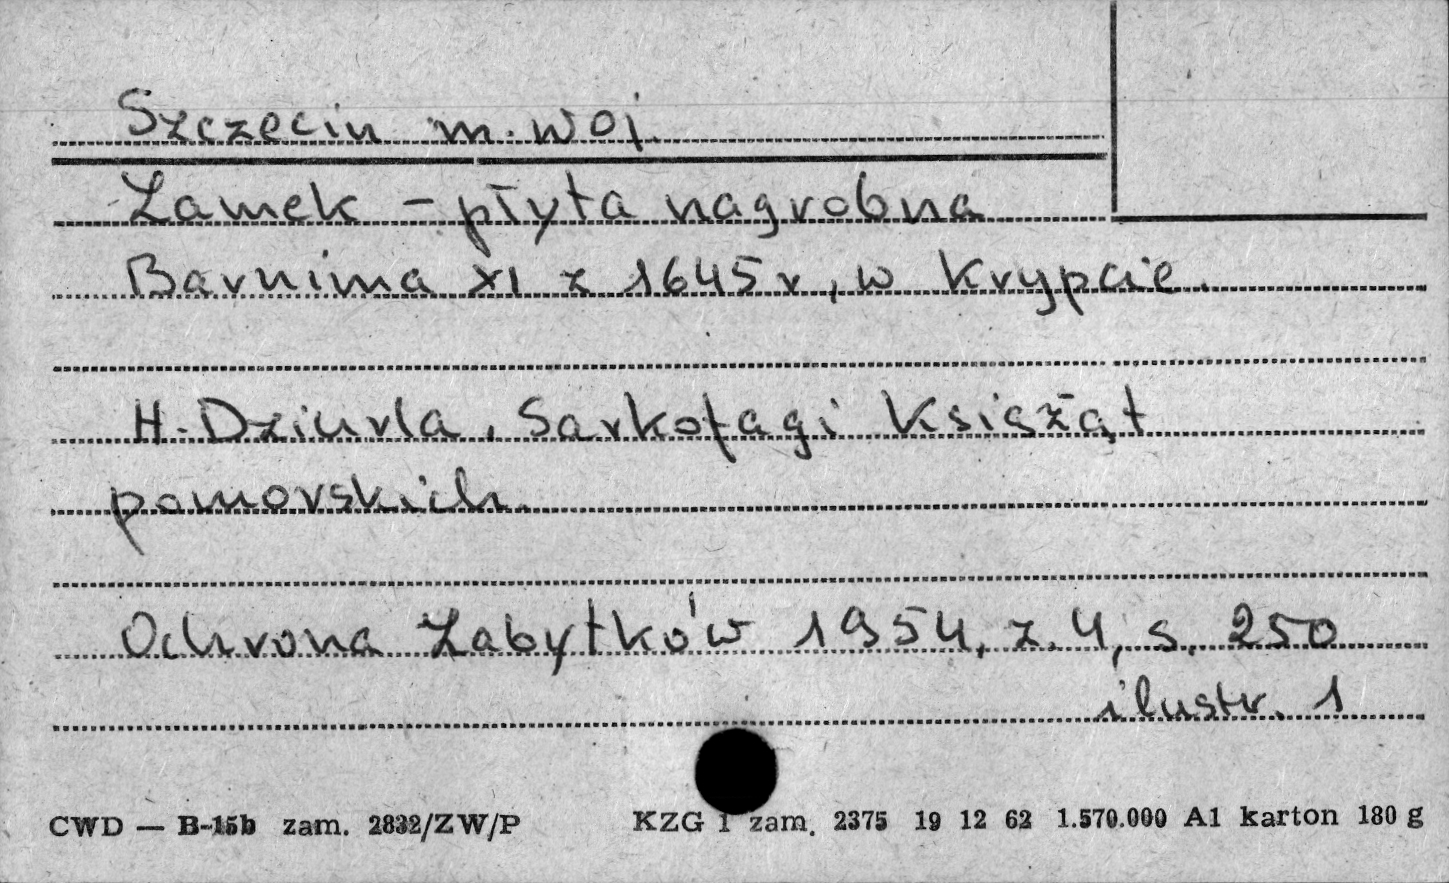 Szczecin m. woj.
Zamek - płyta nagrobna
Barnima XI z 1645 r, w krypcie.
H. Dziurla, Sarkofagi Książąt
pomorskich.
Ochrona Zabytków 1954, z. 4, s. 250
ilustr. 1
CWD — B-15b zam. 2832/ZW/P KZG 1 zam. 2375 19 12 62 1.570.000 A1 karton 180 g